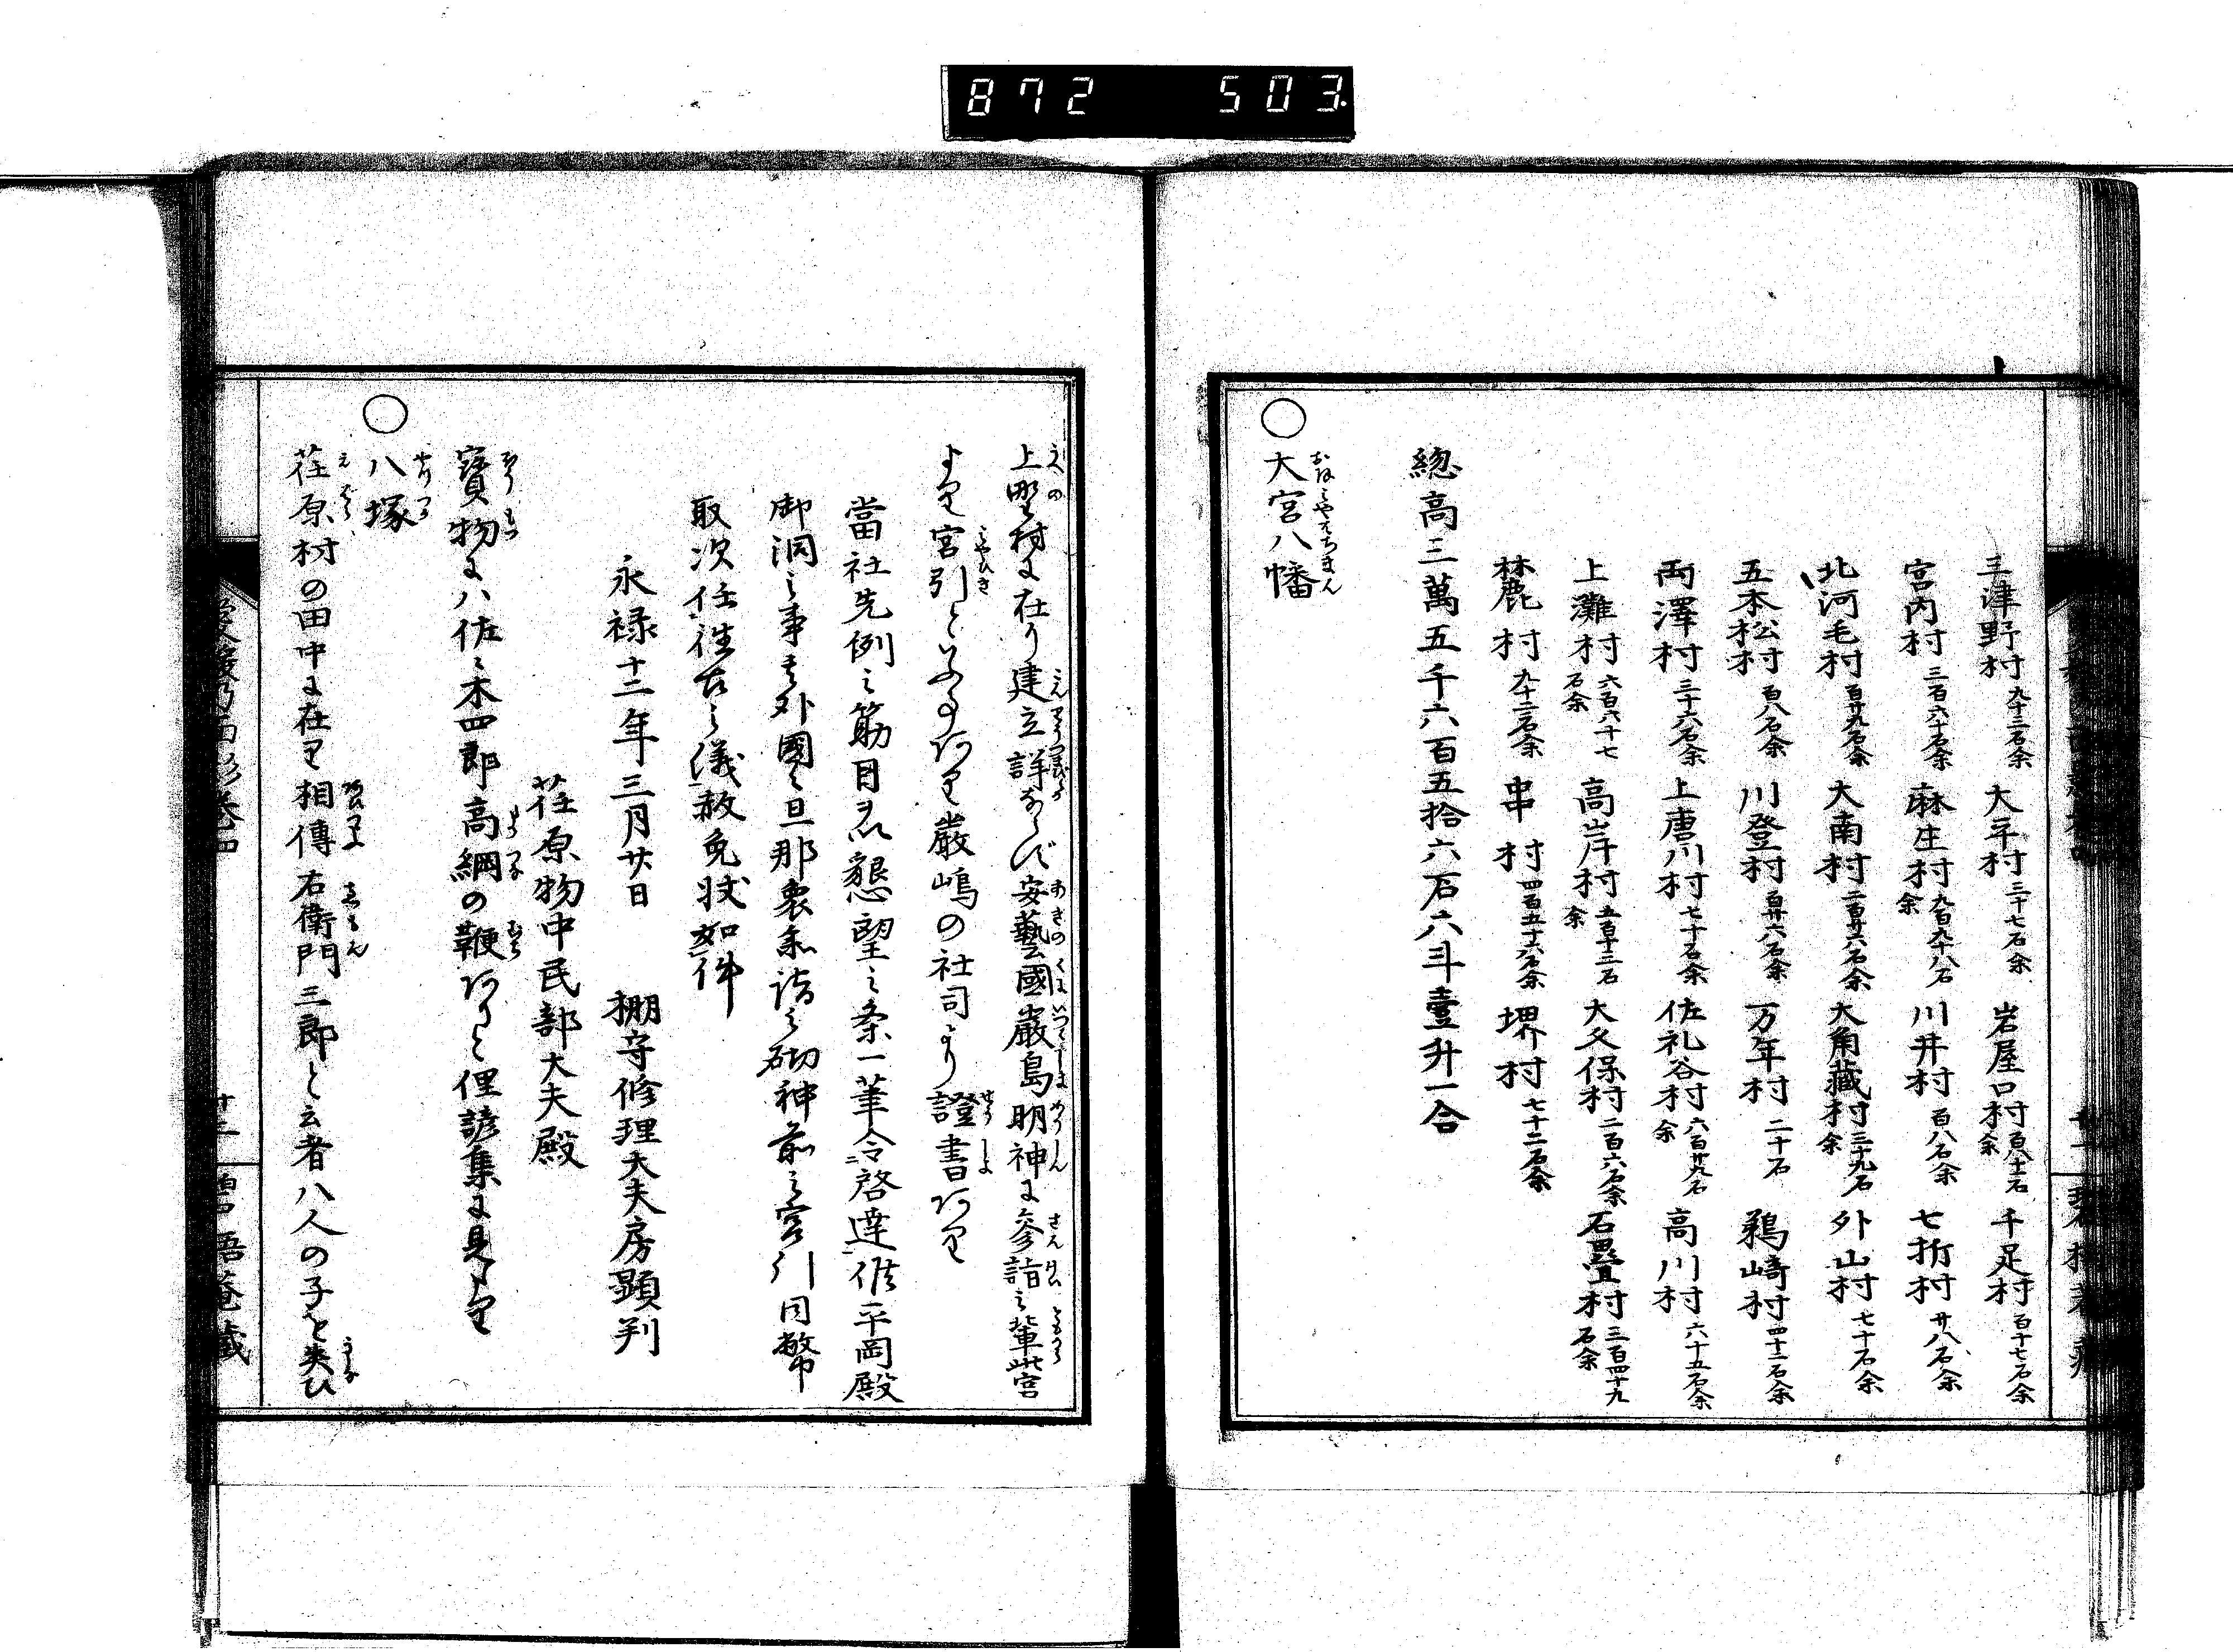 872 503
三津野村 九十三石余 大平村 三十七石余 岩屋口村 百八十二石余 千足村 百十七石余
宮内村 三百六十石余 麻生村 九百九十八石余 川井村 百八石余 七折村 廿八石余
北河毛村 百廿九石余 大南村 二百廿六石余 大角蔵村 三十九石余 外山村 七十石余
五本松村 百八石余 川登村 百廿六石余 万年村 二十石 鵜崎村 四十二石余
両澤村 三十六石余 上唐川村 七十石余 佐礼谷村 六百廿九石余 高川村 六十五石余
上灘村 六百六十七石余 高岸村 五百十三石余 大久保村 二百六石余 石畳村 三百四十九石余
麓村 九十二石余 串村 四百五十六石余 堺村 七十二石余
總高三萬五千六百五拾六石六斗壹升一合
○大宮八幡
上野村に在り建立詳ならず安藝國嚴島明神に参詣之輩此宮
より宮引といふ事あり嚴嶋の社司より證書あり
當社先例之筋目以懇望之条一筆令啓達候平岡殿
御洞之事其外國之旦那衆参詣之砌神前之宮引同幣
取次任往古之儀赦免状如件
永禄十二年三月廿日 棚守修理大夫房顕判
荏原物中民部大夫殿
寳物には佐々木四郎高綱の鞭ありと俚諺集に見より
○八塚
荏原村の田中に在り相傳右衛門三郎と云者八人の子を失ひ